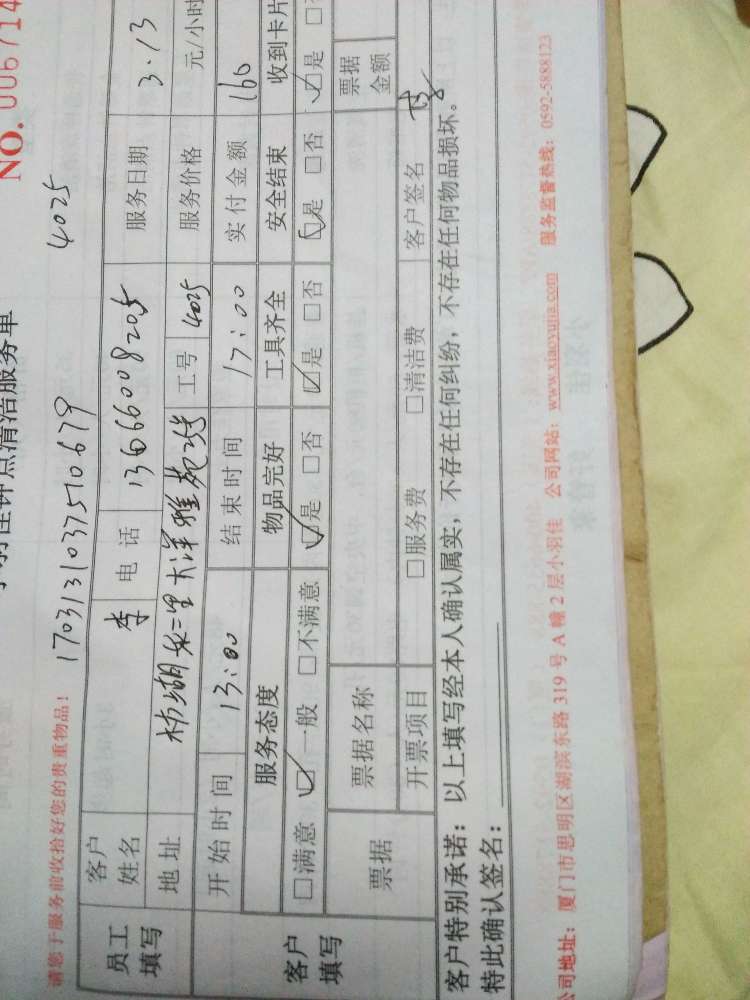 NO. 006714
钟点清洁服务单
请您于服务前收拾好您的贵重物品! 17031310375710679 4025
员工填写 客户姓名 李 电话 13666008205 服务日期 3.13
地址 枋湖东二里大洋雅苑 工号 4025 服务价格 元/小时
客户填写 开始时间 13:00 结束时间 17:00 实付金额 160
服务态度 物品完好 工具齐全 安全结束 收到卡片
□满意 ☑一般 □不满意 ☑是 □否 ☑是 □否 ☑是 □否 ☑是
票据 票据名称 票据金额
开票项目 □服务费 □清洁费 客户签名
客户特别承诺:以上填写经本人确认属实,不存在任何纠纷,不存在任何物品损坏。
特此确认签名:
公司地址:厦门市思明区湖滨东路 319 号 A 幢 2 层小羽佳 公司网站:www.xiaoyujia.com 服务监督热线:0592-5888123